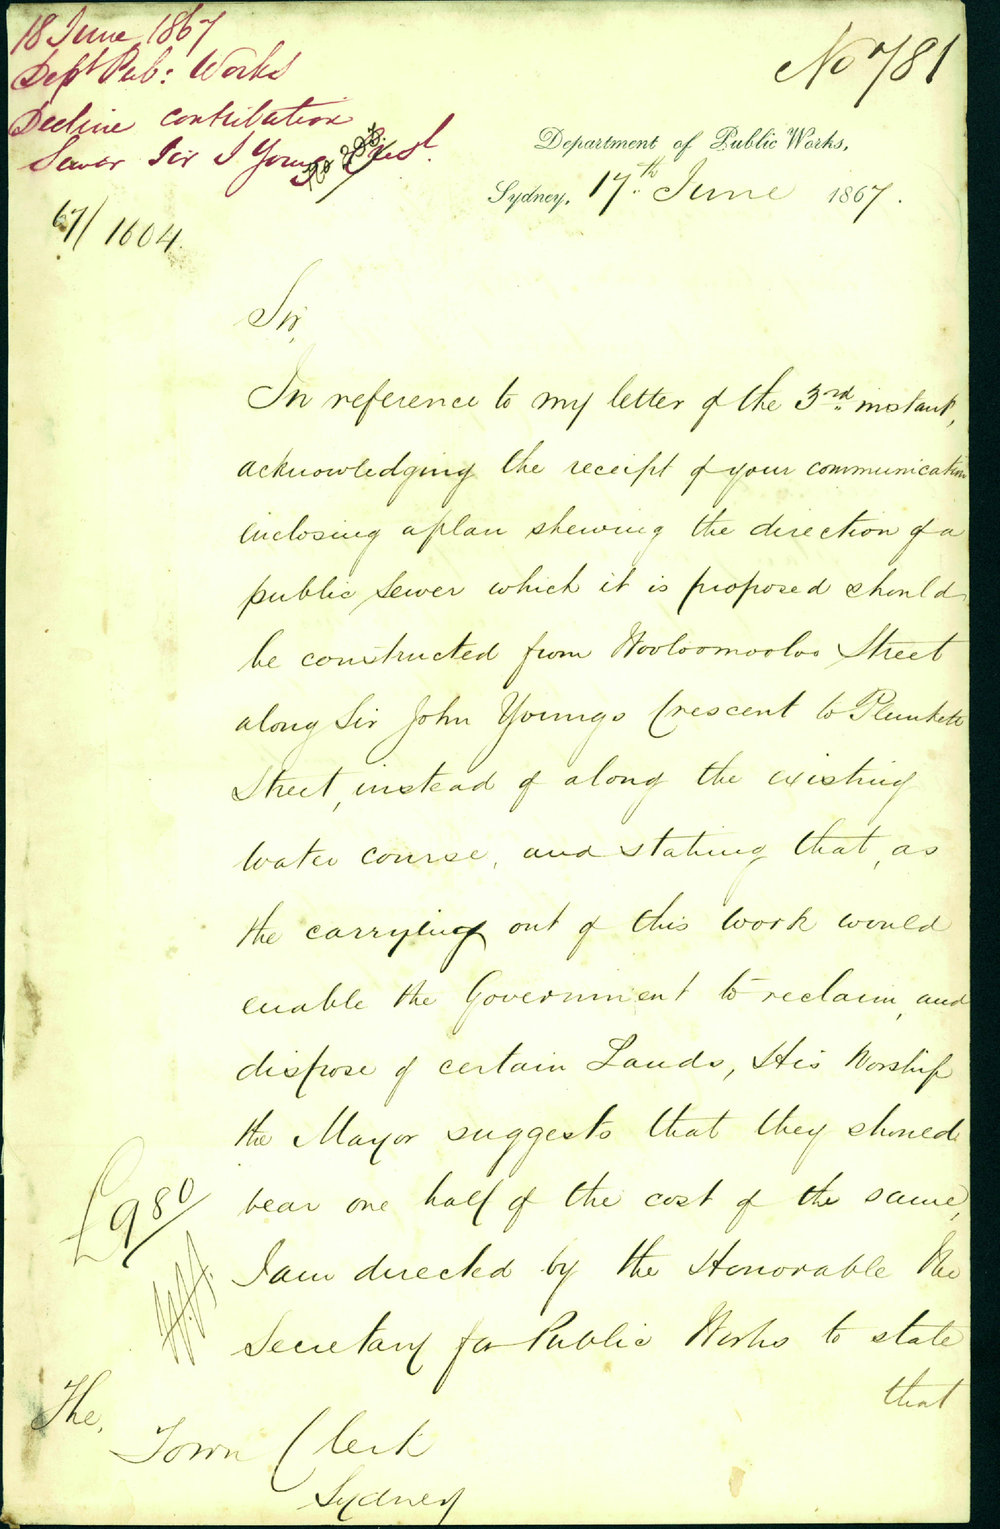 18 June 1867
Dept Pub: Works
Decline contribution
Sewer Sir J Young Crest.
67/1604
No 781
Department of Public Works,
Sydney, 17th June 1867.
Sir,
In reference to my letter of the 3rd instant,
acknowledging the receipt of your communication
inclosing a plan shewing the direction of a
public sewer which it is proposed should
be constructed from Wooloomooloo Street
along Sir John Youngs Crescent to Plunkett
Street, instead of along the existing
water course, and stating that, as
the carrying out of this work would
enable the Government to reclaim, and
dispose of certain Lands, His Worship
the Mayor suggests that they should
bear one half of the cost of the same,
I am directed by the Honorable the
Secretary for Public Works to state
that
£980/
The,
Town Clerk
Sydney